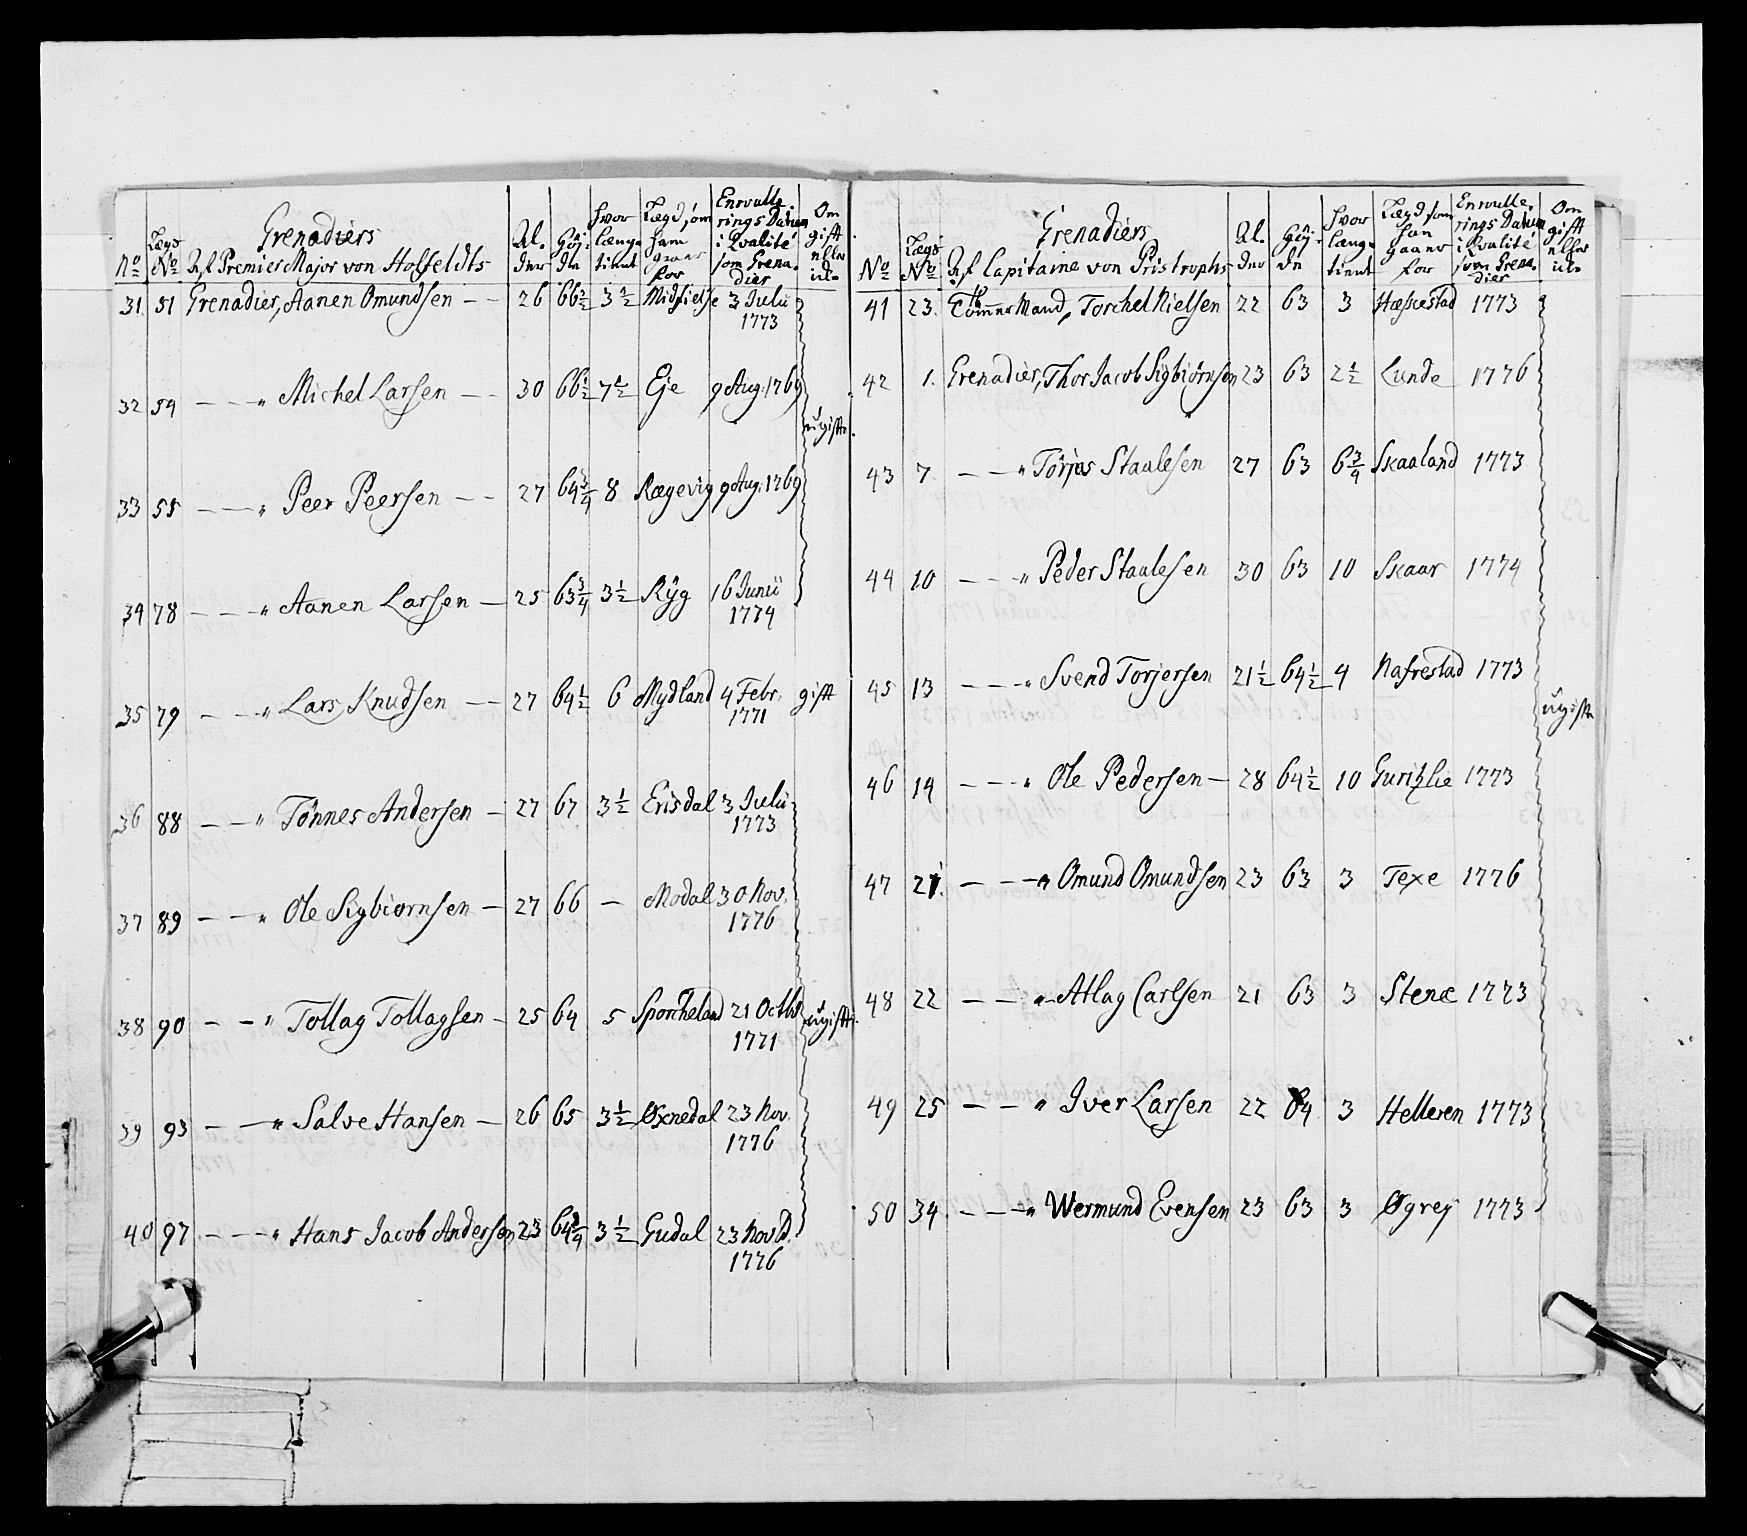 Grenadiers
No
Lægs No
Af Premier Major von Hoffeldts
Al-
der
Høy-
de
hvor
længe
tient
Lægd, som
han
gaaer
for
Enroulle-
rings Datum
i Qvalite
som Grena-
dier
Om
gift
eller
ick
31 51 Grenadier, Aanen Omundsen - - 26 66½ 3½ Midsielse 3 Julii
1773
32 54 - - " Michel Larsen - - 30 66½ 7½ Eje 9 Aug: 1769
ugifte.
33 55 - - " Peer Peersen - - 27 64¾ 8 Rægevig 9 Aug: 1769
34 78 - - " Aanen Larsen - 25 63¾ 3½ Ryg 16 Junii
1774
35 79 - - " Lars Knudsen - - 27 64½ 6 Mydland 4 Febr. gift
1771
36 88 - - " Tönnes Andersen - 27 67 3½ Erisdal 3 Julii
1773
37 89 - - " Ole Sigbiørnsen - 27 66 - Modal 30 Nov.
1776
38 90 - - " Tollag Tollagsen - 25 64 5 Sporcheland 21 Octbr ugifte.
1771
39 93 - - " Salve Hansen - 26 65 3½ Øxnedal 23 Nov.
1776
40 97 - - - " Hans Jacob Andersen 23 64¾ 3½ Gudal 23 Novb.
1776
Grenadiers
No
Lægs No
Af Capitaine von Pristrophs
Al-
der
Høy-
de
hvor
længe
tient
Lægd som
han
gaaer
for
Enroulle-
rings Datum
i Qvalite
som Grena-
dier
Om
gift
eller
ick
41 23. Tömmer Mand, Torchel Nielsen 22 63 3 Hæskestad 1773
42 1. Grenadier, Thor Jacob Sigbiörnsen 23 63 2½ Lunde 1776
43 7 - - " Törjas Staalesen 27 63 6¾ Skaaland 1773
44 10 - - " Peder Staalesen 30 63 10 Skaar 1774
45 13 - - " Svend Torjersen 21½ 64½ 4 Nafrestad 1773
ugifte
46 14 - - " Ole Pedersen - 28 64½ 10 Guritzlie 1773
47 21. - - " Omund Omundsen 23 63 3 Texe 1776
48 22 - - " Atlag Carlsen 21 63 3 Stene 1773
49 25 - - " Iver Larsen 22 64 3 Helleren 1773
50 34 - - - " Wermund Evensen 23 63 3 Øgrey 1773